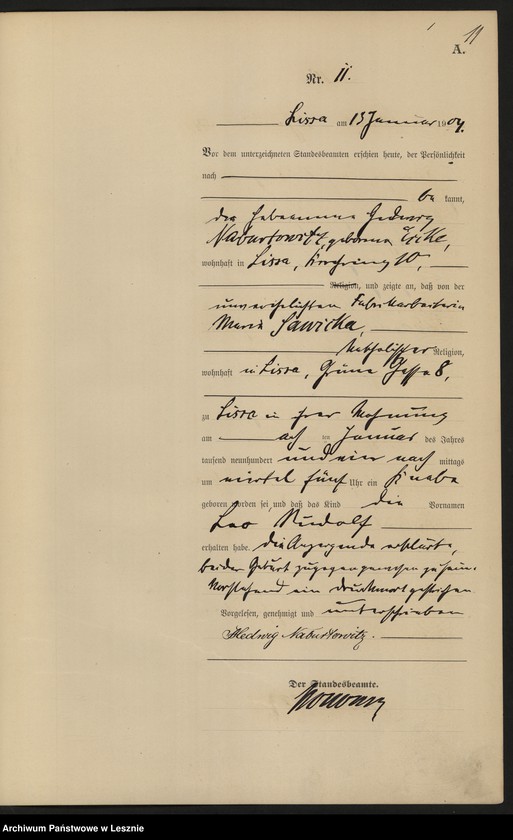 11
A.
Nr. 11.
Lissa am 13 Januar 1904.
Vor dem unterzeichneten Standesbeamten erschien heute, der Persönlichkeit
nach
be kannt,
die Hebamme Hedwig
Naburtowitz, geborene
wohnhaft in Lissa, Kirchring 10,
Religion, und zeigte an, daß von der
unverehelichten Fabrikarbeiterin
Maria Sawicka,
katholischer Religion,
wohnhaft in Lissa, Grüne Gasse 8,
zu Lissa in ihrer Wohnung
am ten Januar des Jahres
tausend neunhundert und vier nach mittags
um viertel fünf Uhr ein Knabe
geboren worden sei, und daß das Kind die Vornamen
Leo Rudolf
erhalten habe. Die Anzeigende erklärte,
bei der Geburt zugegen gewesen zu sein.
Vorstehend ein Druckwort gestrichen
Vorgelesen, genehmigt und unterschrieben
Hedwig Naburtowitz.
Der Standesbeamte.
Archiwum Państwowe w Lesznie